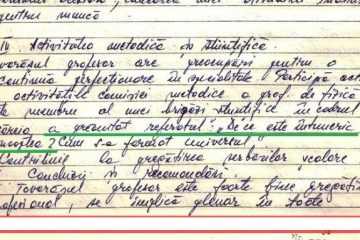 pentru muncă
IV Activitatea metodică și științifică.
Tovarășul profesor are preocupări pentru o
continuă perfecționare în specialitate. Participă activ
activitățile comisiei metodice a prof. de fizică
te membru al unei brigăzi științifice în cadrul
a prezentat referatul „De ce este întuneric
noaptea? Cum s-a format universul"
Contribuie la pregătirea serbărilor școlare
Concluzii și recomandări.
Tovarășul profesor este foarte bine pregătit
ofesional, se implică plenar în toate